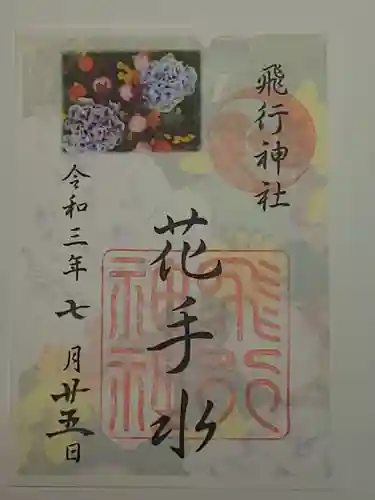 飛行神社
花手水
飛行
神社
令和三年七月廿五日